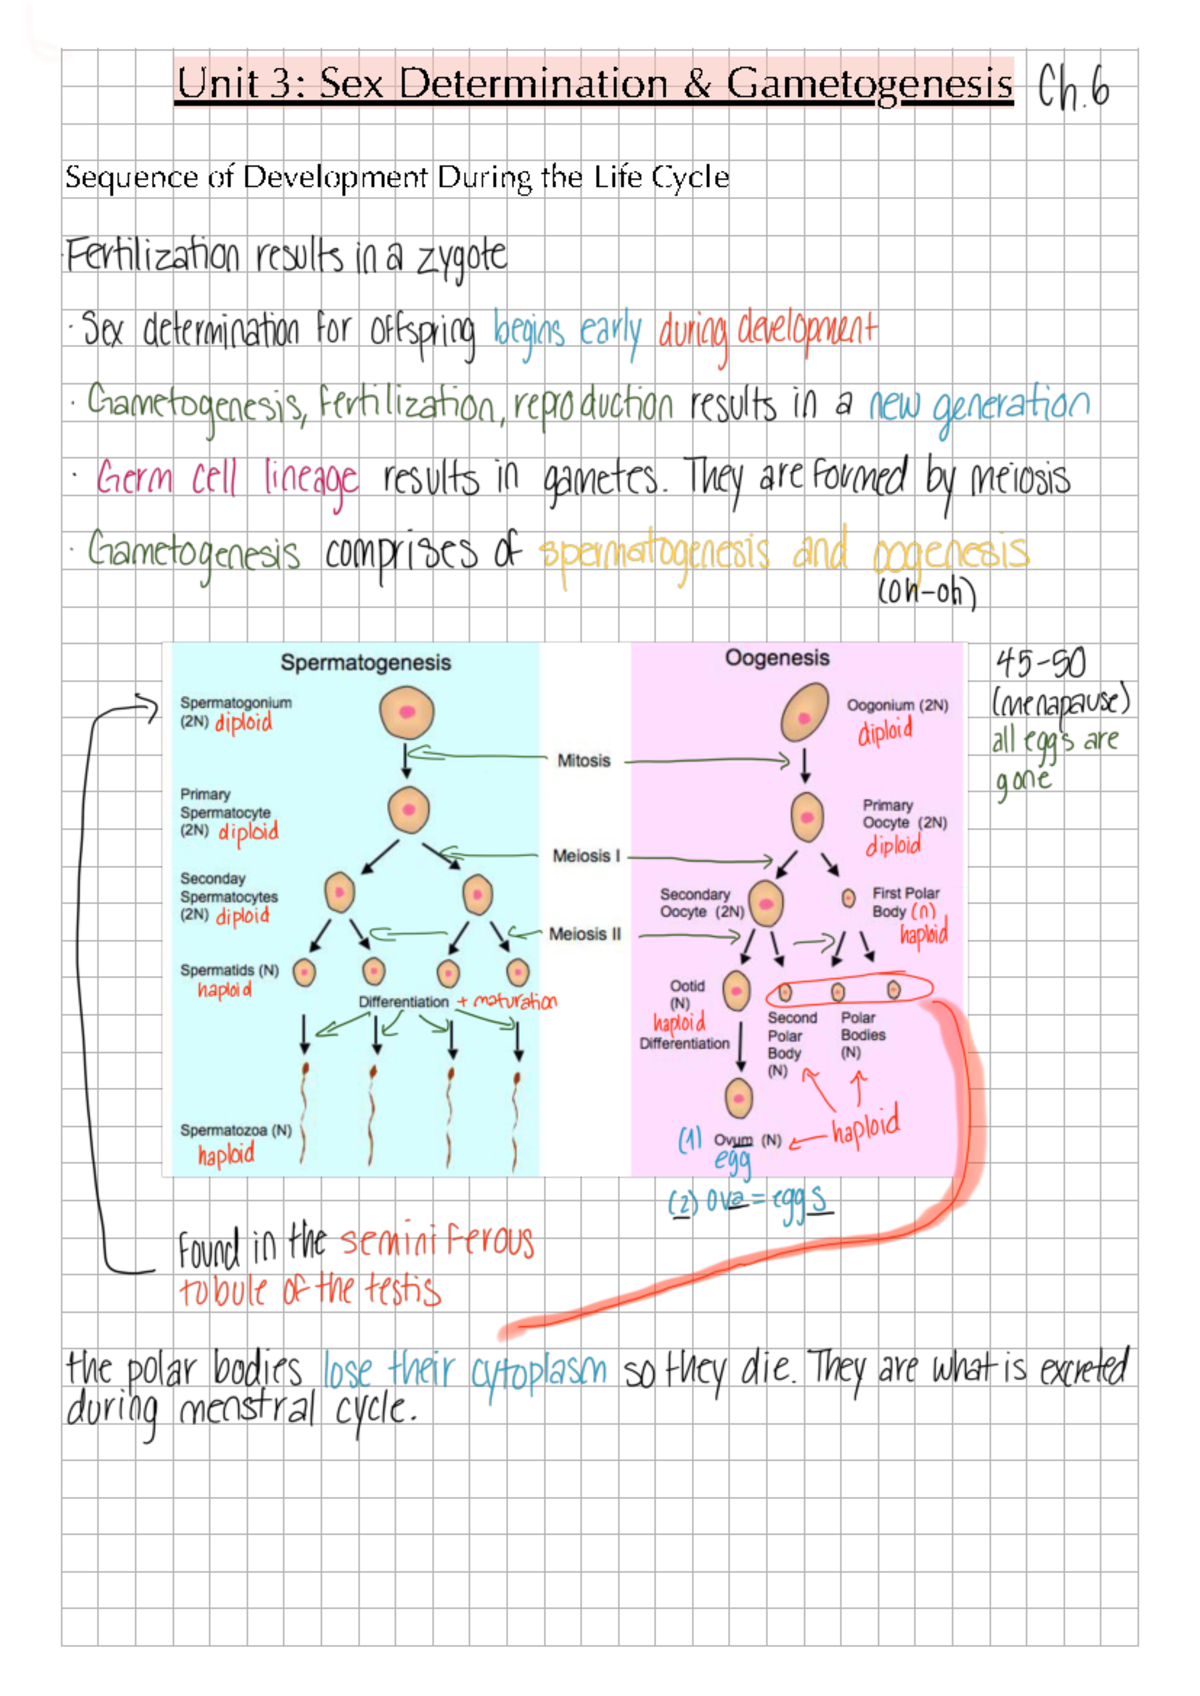 Unit 3: Sex Determination & Gametogenesis Ch.6
Sequence of Development During the Life Cycle
·Fertilization results in a zygote
· Sex determination for offspring begins early during development
· Gametogenesis, fertilization, reproduction results in a new generation
· Germ cell lineage results in gametes. They are formed by meiosis
· Gametogenesis comprises of spermatogenesis and oogenesis
(oh-oh)
Spermatogenesis
Spermatogonium
(2N) diploid
Primary
Spermatocyte
(2N) diploid
Seconday
Spermatocytes
(2N) diploid
Spermatids (N)
haploid
Differentiation + maturation
Spermatozoa (N)
haploid
Mitosis
Meiosis I
Meiosis II
Oogenesis
Oogonium (2N)
diploid
Primary
Oocyte (2N)
diploid
Secondary
Oocyte (2N)
First Polar
Body (n)
haploid
Ootid
(N)
haploid
Differentiation
Second
Polar
Body
(N)
Polar
Bodies
(N)
haploid
(1) Ovum (N)
egg
(2) ova = eggs
45-50
(menapause)
all eggs are
gone
Found in the seminiferous
tobule of the testis
the polar bodies lose their cytoplasm so they die. They are what is excreted
during menstral cycle.